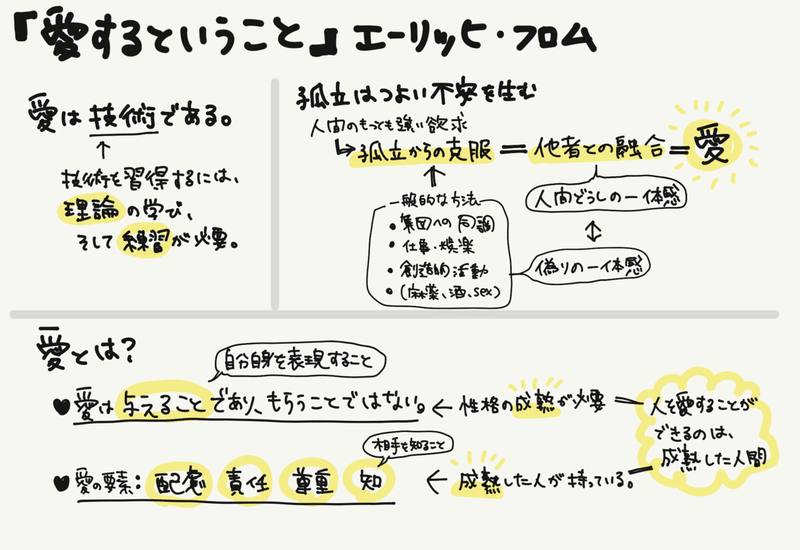 『愛するということ』エーリッヒ・フロム
愛は技術である。
↑
技術を習得するには、
理論の学び、
そして練習が必要。
孤立はつよい不安を生む
人間のもっとも強い欲求
↳孤立からの克服＝他者との融合＝愛
人間どうしの一体感
↕
偽りの一体感
一般的な方法
・集団への同調
・仕事・娯楽
・創造的活動
・(麻薬、酒、sex)
愛とは？
自分自身を表現すること
♥愛は与えることであり、もらうことではない。← 性格の成熟が必要
相手を知ること
♥愛の要素：配慮 責任 尊重 知 ← 成熟した人が持っている。
人を愛することが
できるのは、
成熟した人間